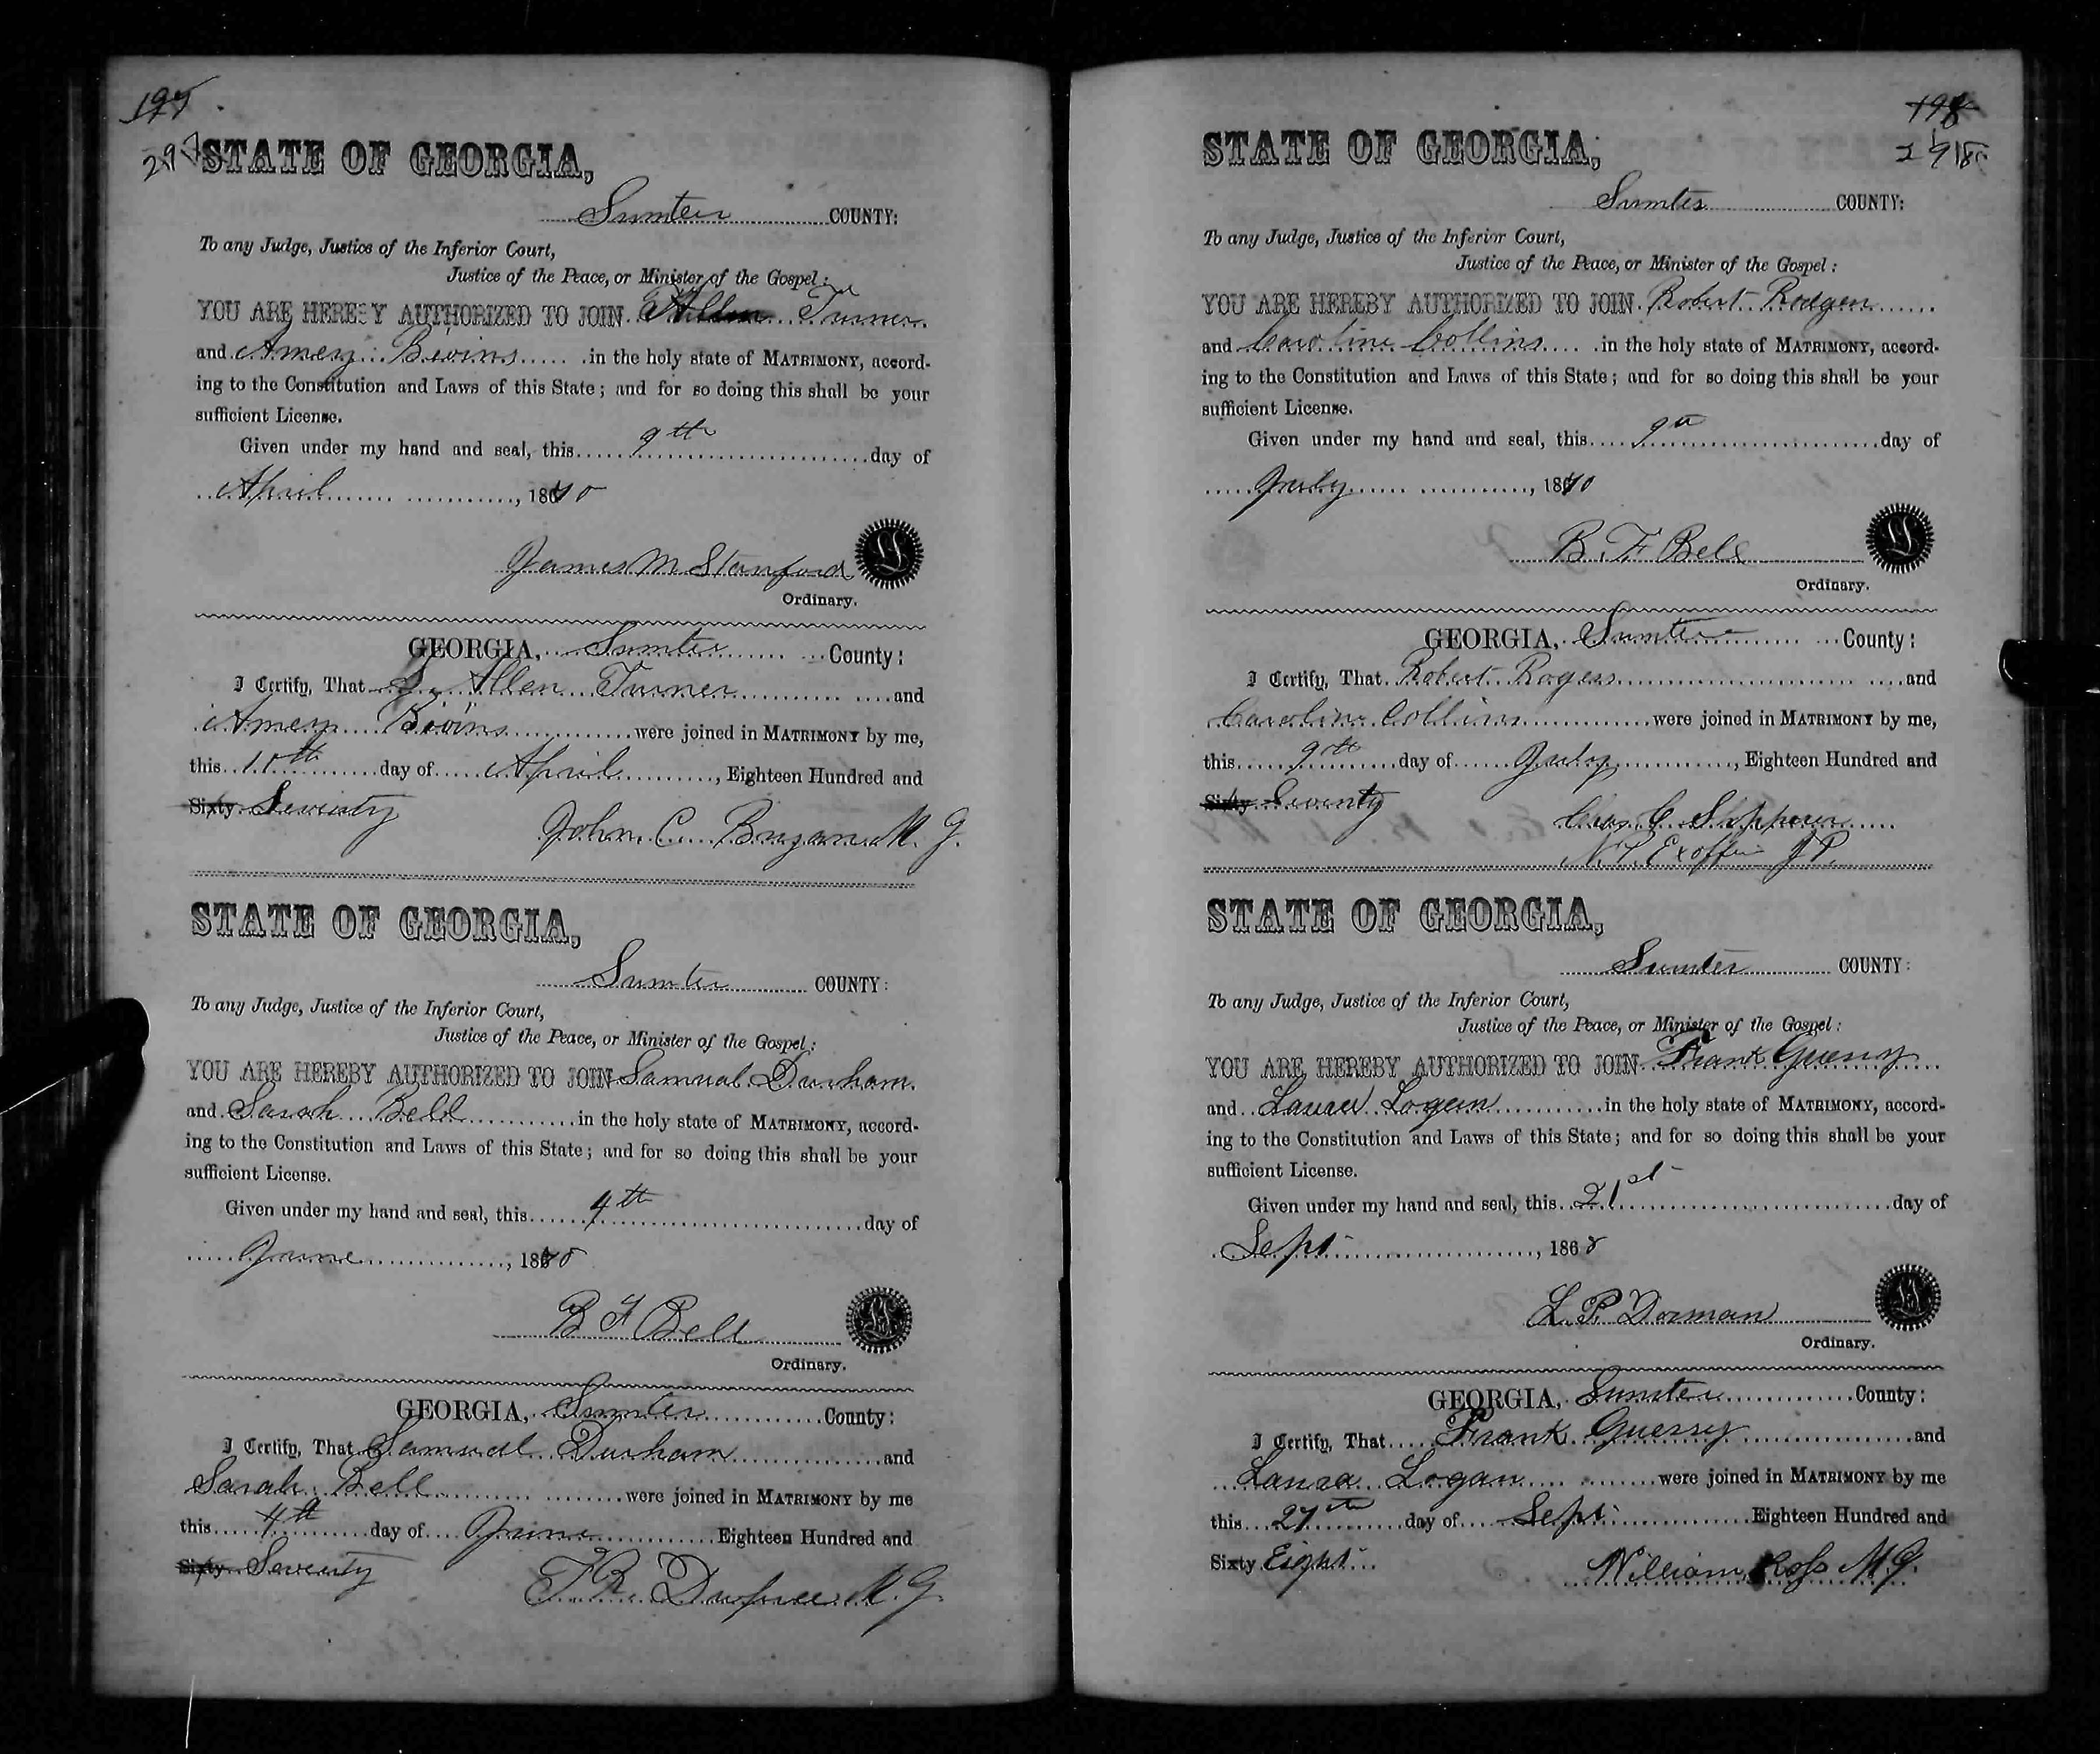 197
297
STATE OF GEORGIA,
Sumter COUNTY:
To any Judge, Justice of the Inferior Court,
Justice of the Peace, or Minister of the Gospel:
YOU ARE HEREBY AUTHORIZED TO JOIN Allen Turner
and Amery Bivins in the holy state of MATRIMONY, accord-
ing to the Constitution and Laws of this State; and for so doing this shall be your
sufficient License.
Given under my hand and seal, this 9th day of
April, 1870
James M Stanford
Ordinary.
GEORGIA, Sumter County:
I Certify, That Allen Turner and
Amery Bivins were joined in MATRIMONY by me,
this 10th day of April, Eighteen Hundred and
Sixty Seventy
John C. M. G.
STATE OF GEORGIA,
Sumter COUNTY:
To any Judge, Justice of the Inferior Court,
Justice of the Peace, or Minister of the Gospel:
YOU ARE HEREBY AUTHORIZED TO JOIN Samual Durham
and Sarah Bell in the holy state of MATRIMONY, accord-
ing to the Constitution and Laws of this State; and for so doing this shall be your
sufficient License.
Given under my hand and seal, this 4th day of
June, 1870
B F Bell
Ordinary.
GEORGIA, Sumter County:
I Certify, That Samual Durham and
Sarah Bell were joined in MATRIMONY by me
this 4th day of June Eighteen Hundred and
Sixty Seventy
F. R. Dupree M. G.
198
298
STATE OF GEORGIA,
Sumter COUNTY:
To any Judge, Justice of the Inferior Court,
Justice of the Peace, or Minister of the Gospel:
YOU ARE HEREBY AUTHORIZED TO JOIN Robert Rodgers
and Caroline Collins in the holy state of MATRIMONY, accord-
ing to the Constitution and Laws of this State; and for so doing this shall be your
sufficient License.
Given under my hand and seal, this 9th day of
July, 1870
B. F Bell
Ordinary.
GEORGIA, Sumter County:
I Certify, That Robert Rogers and
Caroline Collins were joined in MATRIMONY by me,
this 9th day of July, Eighteen Hundred and
Sixty Seventy
Chas C
N. P. Exoffi J P.
STATE OF GEORGIA,
Sumter COUNTY:
To any Judge, Justice of the Inferior Court,
Justice of the Peace, or Minister of the Gospel:
YOU ARE HEREBY AUTHORIZED TO JOIN Frank Guerry
and Laura Logan in the holy state of MATRIMONY, accord-
ing to the Constitution and Laws of this State; and for so doing this shall be your
sufficient License.
Given under my hand and seal, this 21st day of
Sept, 1868
L. P. Dorman
Ordinary.
GEORGIA, Sumter County:
I Certify, That Frank Guerry and
Laura Logan were joined in MATRIMONY by me
this 27th day of Sept Eighteen Hundred and
Sixty Eight
William Ross M. G.